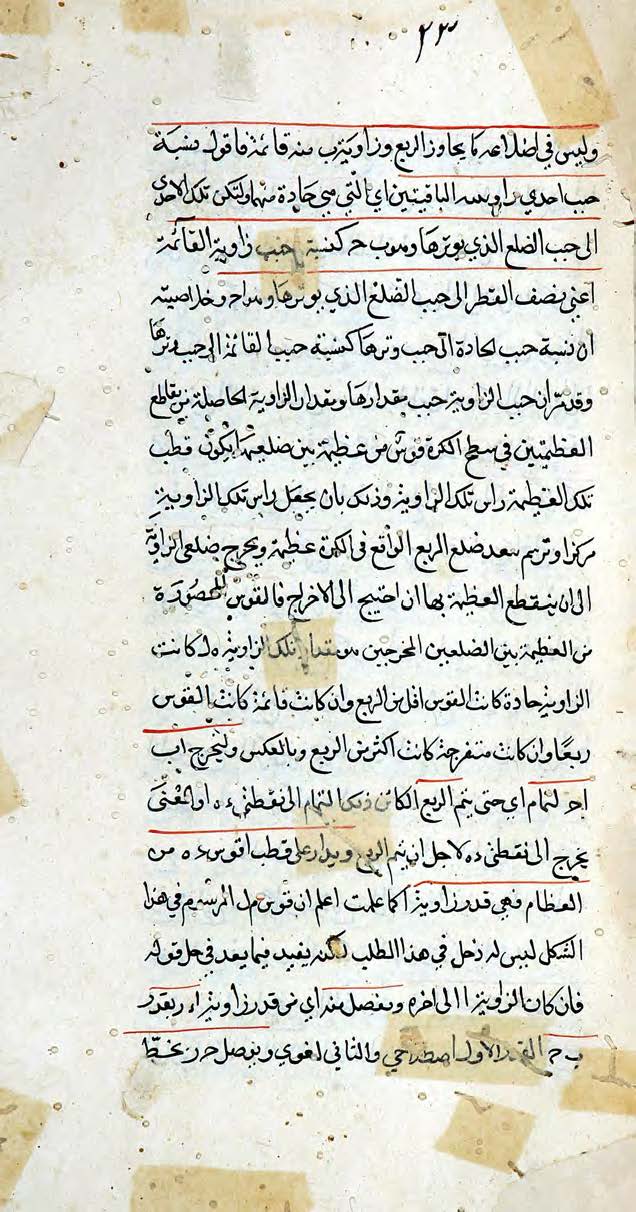 ٢٣
وليس في اضلاعه ما يجاوز الربع وزاوية ب منه قائمة فاقول نسبة
جيب احدي زاويتيه الباقيتين اي التي هي حادة منهما ولتكن تلك الاحدى
الى جيب الضلع الذي يوترها وهو ب ح كنسبة جيب زاوية القائمة
اعني نصف القطر الى جيب الضلع الذي يوترها وهو ا ح وخلاصته
ان نسبة جيب الحادة الى جيب وترها كنسبة جيب القائمة الى جيب وترها
وقد مر ان جيب الزاوية جيب مقدارها ومقدار الزاوية الحاصلة من تقاطع
العظيمتين في سطح الكرة قوس من عظيمة بين ضلعيها يكون قطب
تلك العظيمة راس تلك الزاوية وذلك بان يجعل راس تلك الزاوية
مركزا وترسم ببعد ضلع المربع الواقع في الكرة عظيمة ويخرج ضلعي الزاوية
الى ان ينقطع العظيمة بها ان احتيج الى الاخراج فالقوس المحصورة
من العظيمة بين الضلعين المخرجين هو مقدار تلك الزاوية كانت
الزاوية حادة كانت القوس اقل من الربع وان كانت قائمة كانت القوس
ربعا وان كانت منفرجة كانت اكثر من الربع وبالعكس وليخرج اب
اح لتمام اي حتى يتم الربع الكائن ذلك التمام الى نقطتي ء ه او المعنى
يخرج الى نقطتي ء ه لاجل ان يتم الربع ويدار على قطب ا قوس ء ه من
العظام فهي قدر زاوية ا كما علمت اعلم ان قوس م ل المرسوم في هذا
الشكل ليس له دخل في هذا المطلب لكنه يفيد فيما بعد في حل قوله
فان كان الزاوية ا الى اخره ونفصل منه اي من قدر زاوية ا ء ر بقدر
ب ح القدر الاول اصطلاحي والثاني لغوي ونصل ح ر بخط